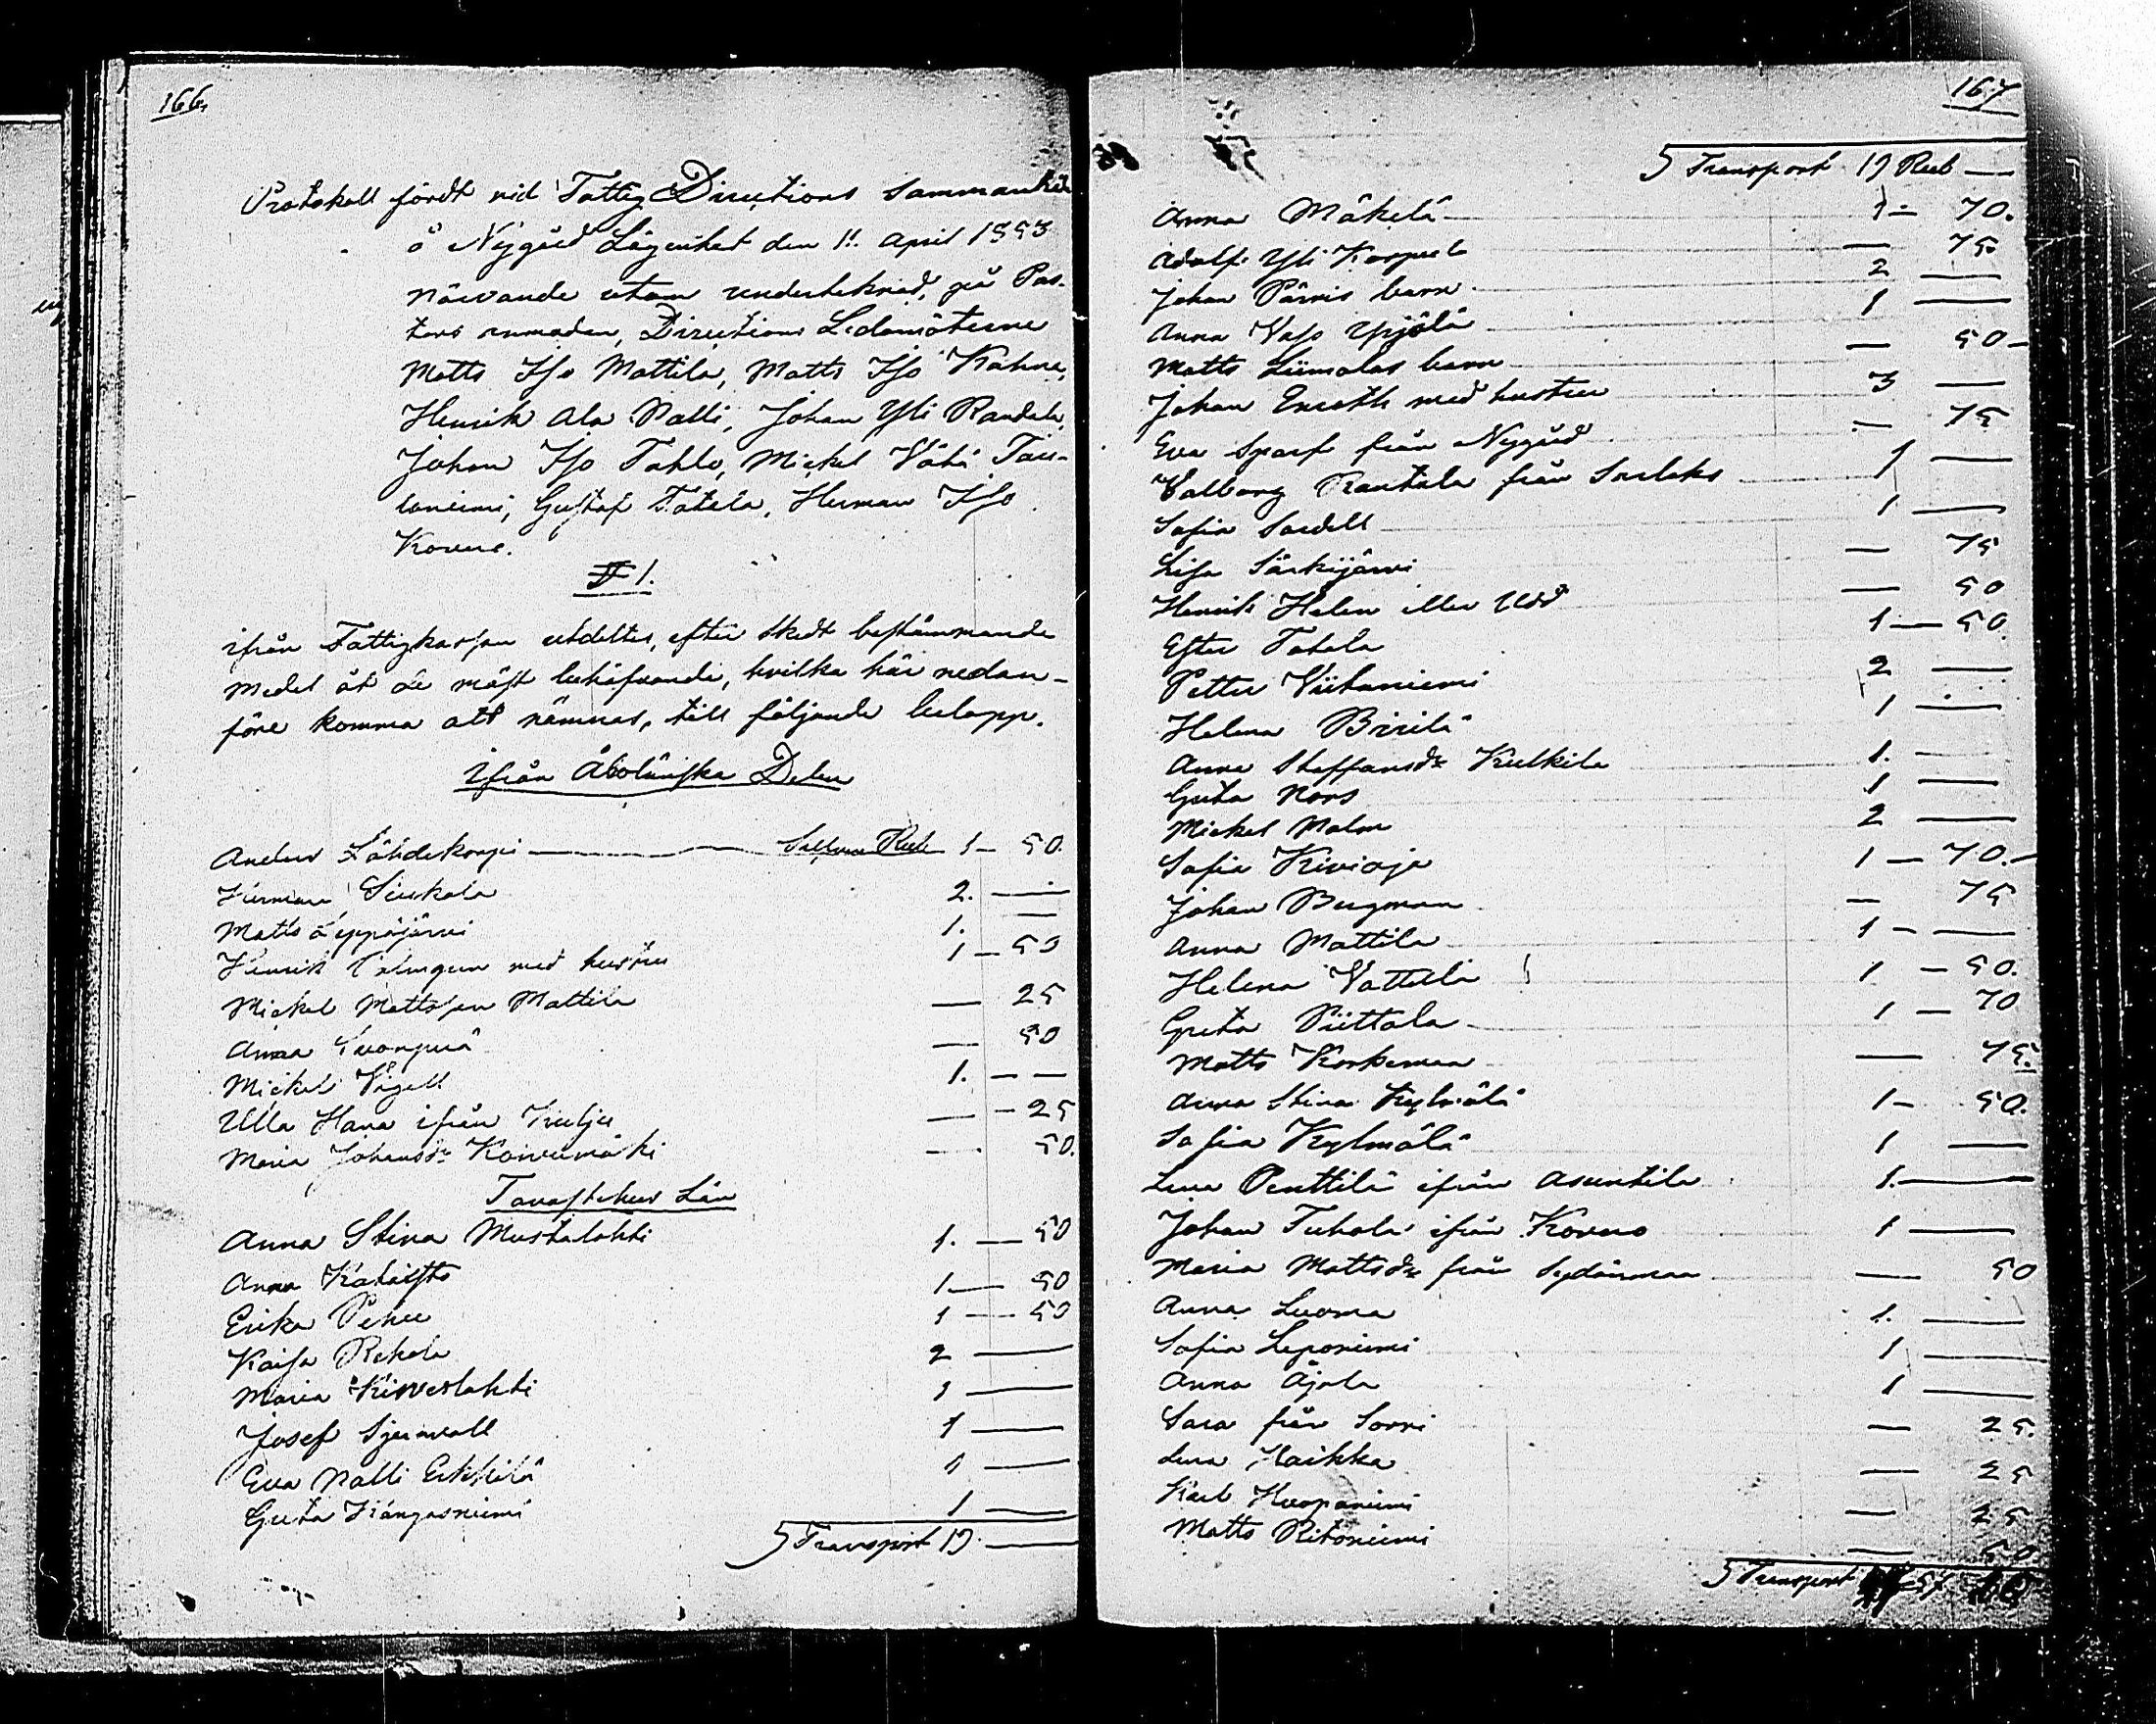 166.
Protokoll fördt vid Fattig Directions Samman
å Nygård Lägenhet den 1: April 1853
närvande utom undertecknad, på Pas-
tors anmodan, Directions Ledamöterne
Matts Iso Mattila, Matts Iso Kahra,
Henrik Ala Nalli, Johan Yli Randala,
Johan Iso Tahlo, Mickel Vähä Tau-
loniemi, Gustaf Tatala, Herman Iso
Kovero.
§ 1.
ifrån Fattigkassan utdeltes, efter skedt bestämmande
medel åt de mäst behöfvande, hvilka här nedan-
före komma att nämnas, till följande belopp.
Ifrån Åbolänska Delen
Anders Lähdekorpi — Silfver Rub 1 — 50.
Herman Siukola 2. —
Matts äyppäjärvi 1. —
Henrik med hustru 1 — 50
Mickel Mattsson Mattila — 25
Anna — 50
Mickel Vigell 1. — —
Ulla Hana ifrån Kulju — 25
Maria Johansdr Koivumäki — 50.
Tavastehus Län
Anna Stina Mustalahti 1. — 50
Anna 1 — 50
Erika Pehu 1 — 50
Kaisa Rekola 2 —
Maria Kirveslahti 1 —
Josef 1 —
Eva Nalli Erkkilä 1 —
Greta Kangasniemi 1 —
Transport 19. —
167
Transport 19 Rub —
Anna Mäkelä 1 — 70.
Adolf Yli Korpula — 75
Johan Pärnis barn 2 —
Anna Yrjölä 1 —
Matts Liimolas barn — 50 —
Johan Enroth med hustru 3 —
Eva Sparf från Nygård — 75
Valborg Rautala från Sarlaks 1 —
Sofia Sardell 1 —
Lisa Särkijärvi — 75
Henrik Helen eller Udd — 50
Ester Tatala 1 — 50
Petter Viitaniemi 2 —
Helena Birilä 1 —
Anna Staffansdr Kulkila 1. —
Greta Nors 1 —
Mickel Malm 2 —
Sofia Kivioja 1 — 70. —
Johan Bergman — 75
Anna Mattila 1 — —
Helena Vattula 1 — 50.
Greta Piittala 1 — 70
Matts Korkemaa — 75.
Anna Stina Kylmälä 1 — 50.
Sofia Kylmälä 1 —
Lena Penttilä ifrån Asuntila 1. —
Johan Tuhola ifrån Kovero 1 —
Maria Mattsdr från Sydänmaa — 50
Anna Luoma 1. —
Sofia Leponiemi 1 —
Anna Äjälä 1 —
Sara från Sorri — 25.
Lena Haikka — 25
Karl Huopaniemi — 25
Matts Ritoniemi — 50
Transport 57